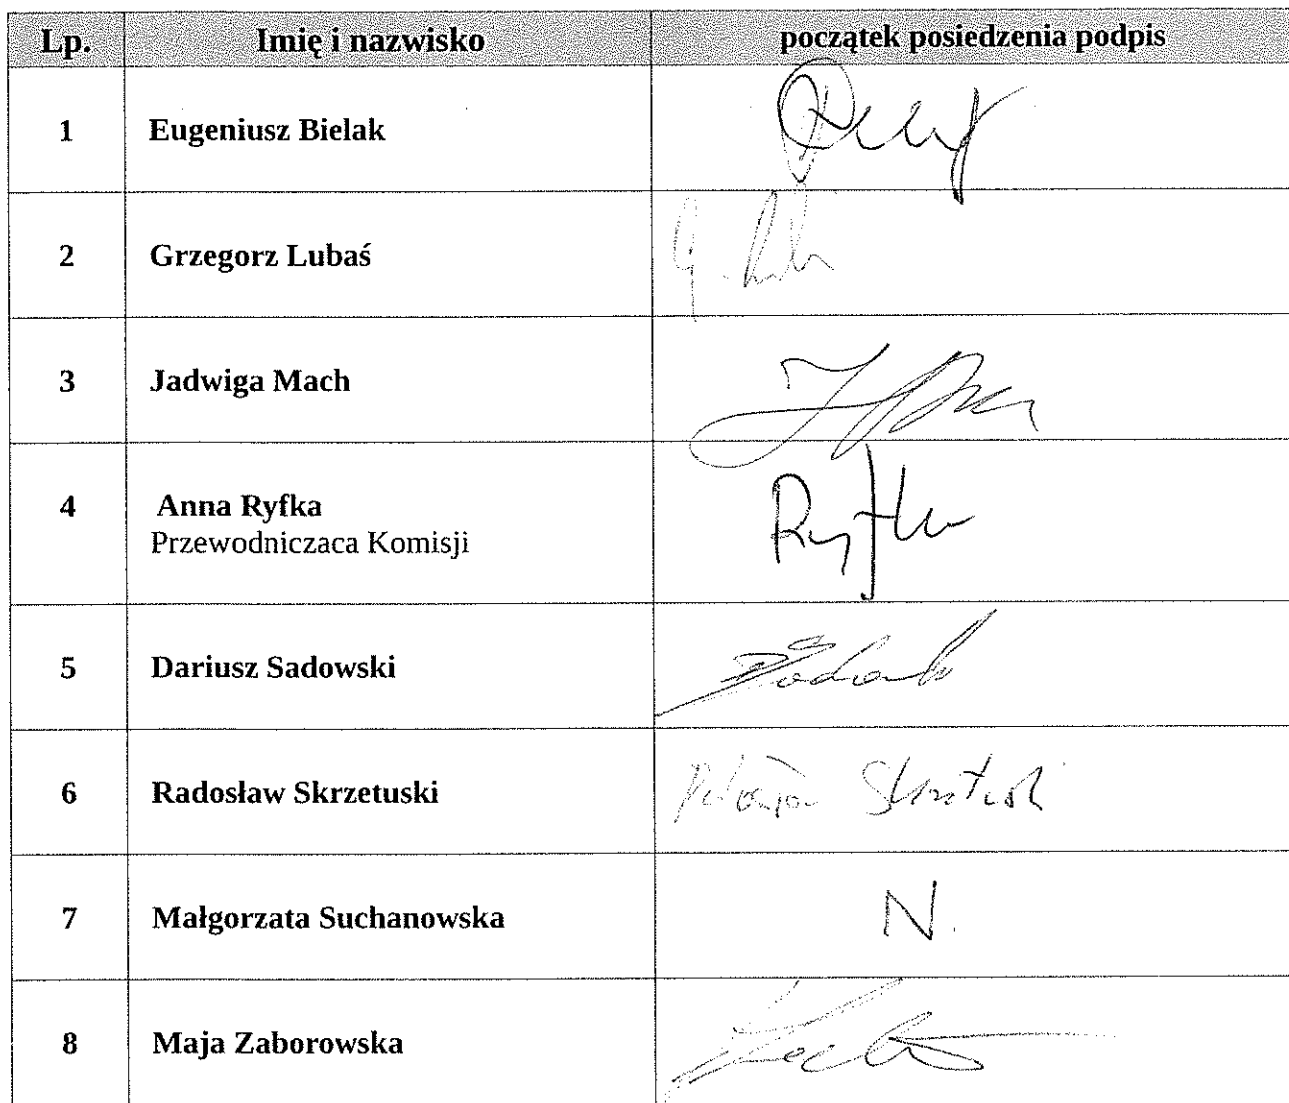 Lp. Imię i nazwisko początek posiedzenia podpis
1 Eugeniusz Bielak
2 Grzegorz Lubaś
3 Jadwiga Mach
4 Anna Ryfka
Przewodniczaca Komisji
5 Dariusz Sadowski
6 Radosław Skrzetuski
7 Małgorzata Suchanowska N.
8 Maja Zaborowska